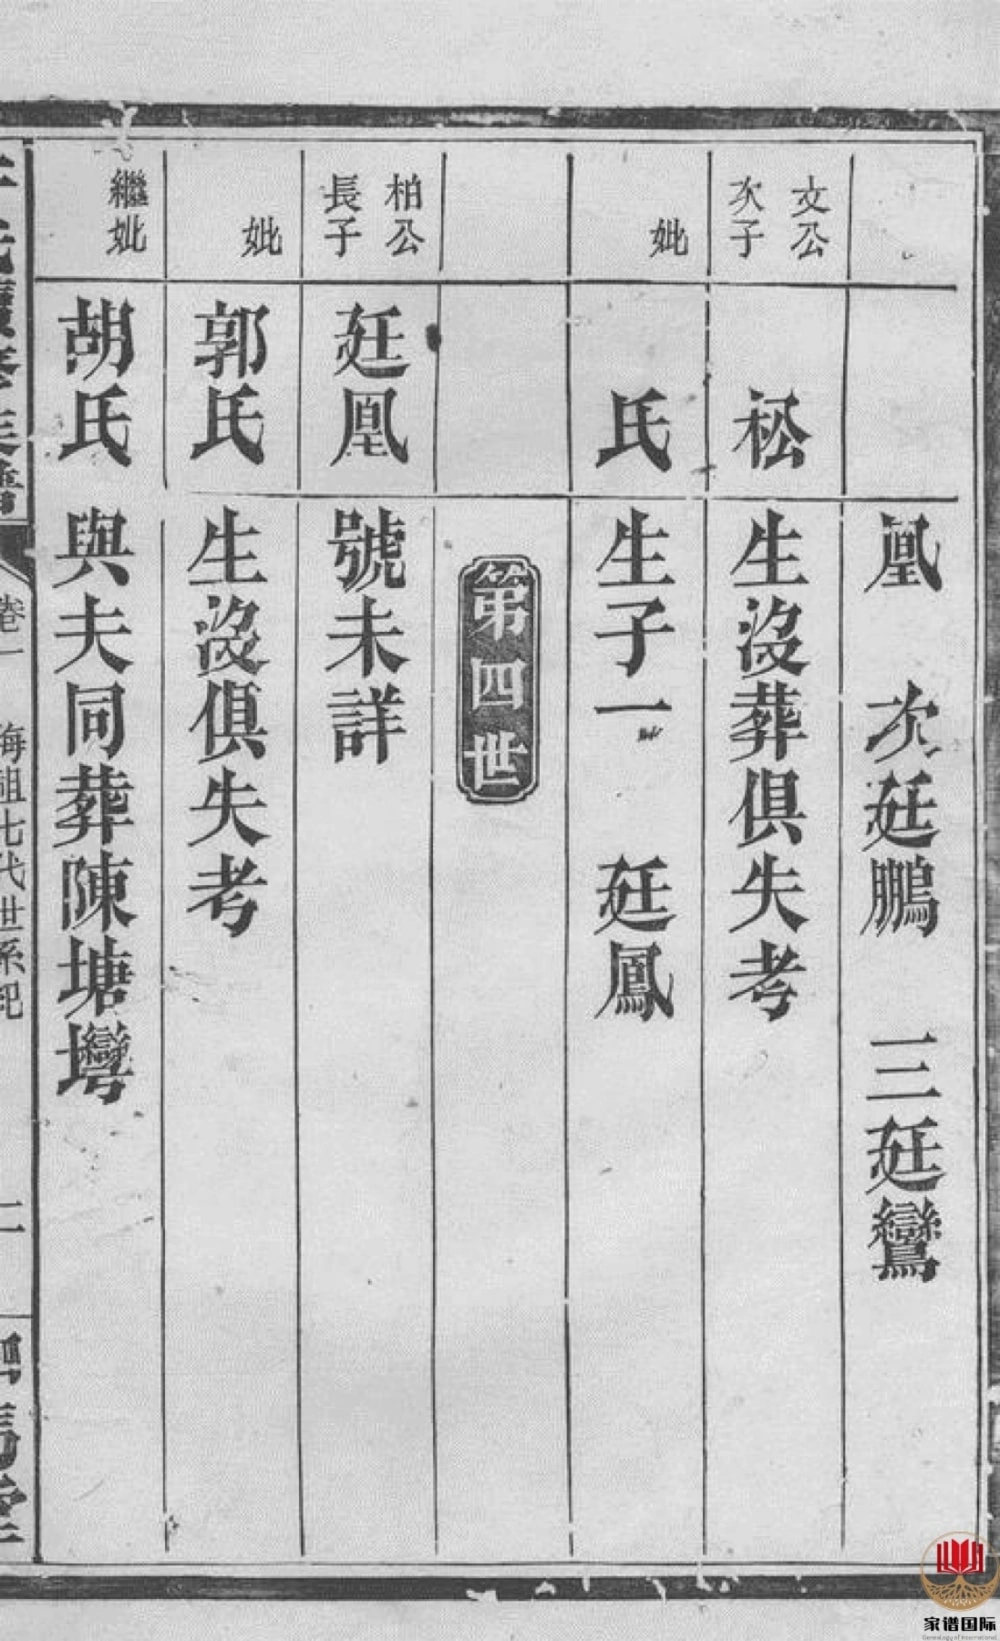 凰 次廷鵬 三廷鸞
文公
次子
松
生沒葬俱失考
妣
氏
生子一 廷鳳
第四世
柏公
長子
廷凰
號未詳
妣
郭氏
生沒俱失考
繼妣
胡氏
與夫同葬陳塘塆
卷一 海祖七代世系紀
二
家谱国际
Genealogy of International